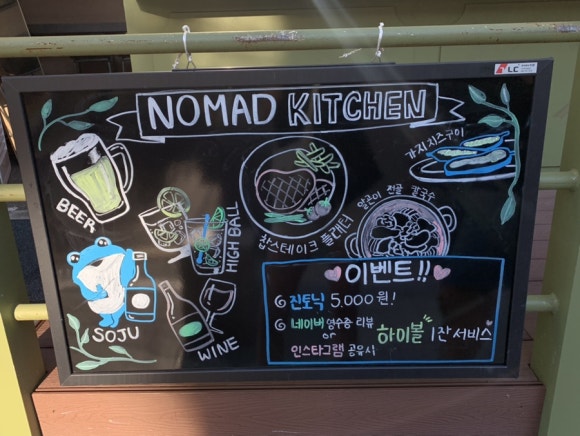 LC
NOMAD KITCHEN
가지치즈구이
BEER
HIGH BALL
찹스테이크 플래터
얼큰이 전골 칼국수
SOJU
WINE
이벤트!!
진토닉 5,000원!
네이버 영수증 리뷰
or
인스타그램 공유시
하이볼 1잔 서비스